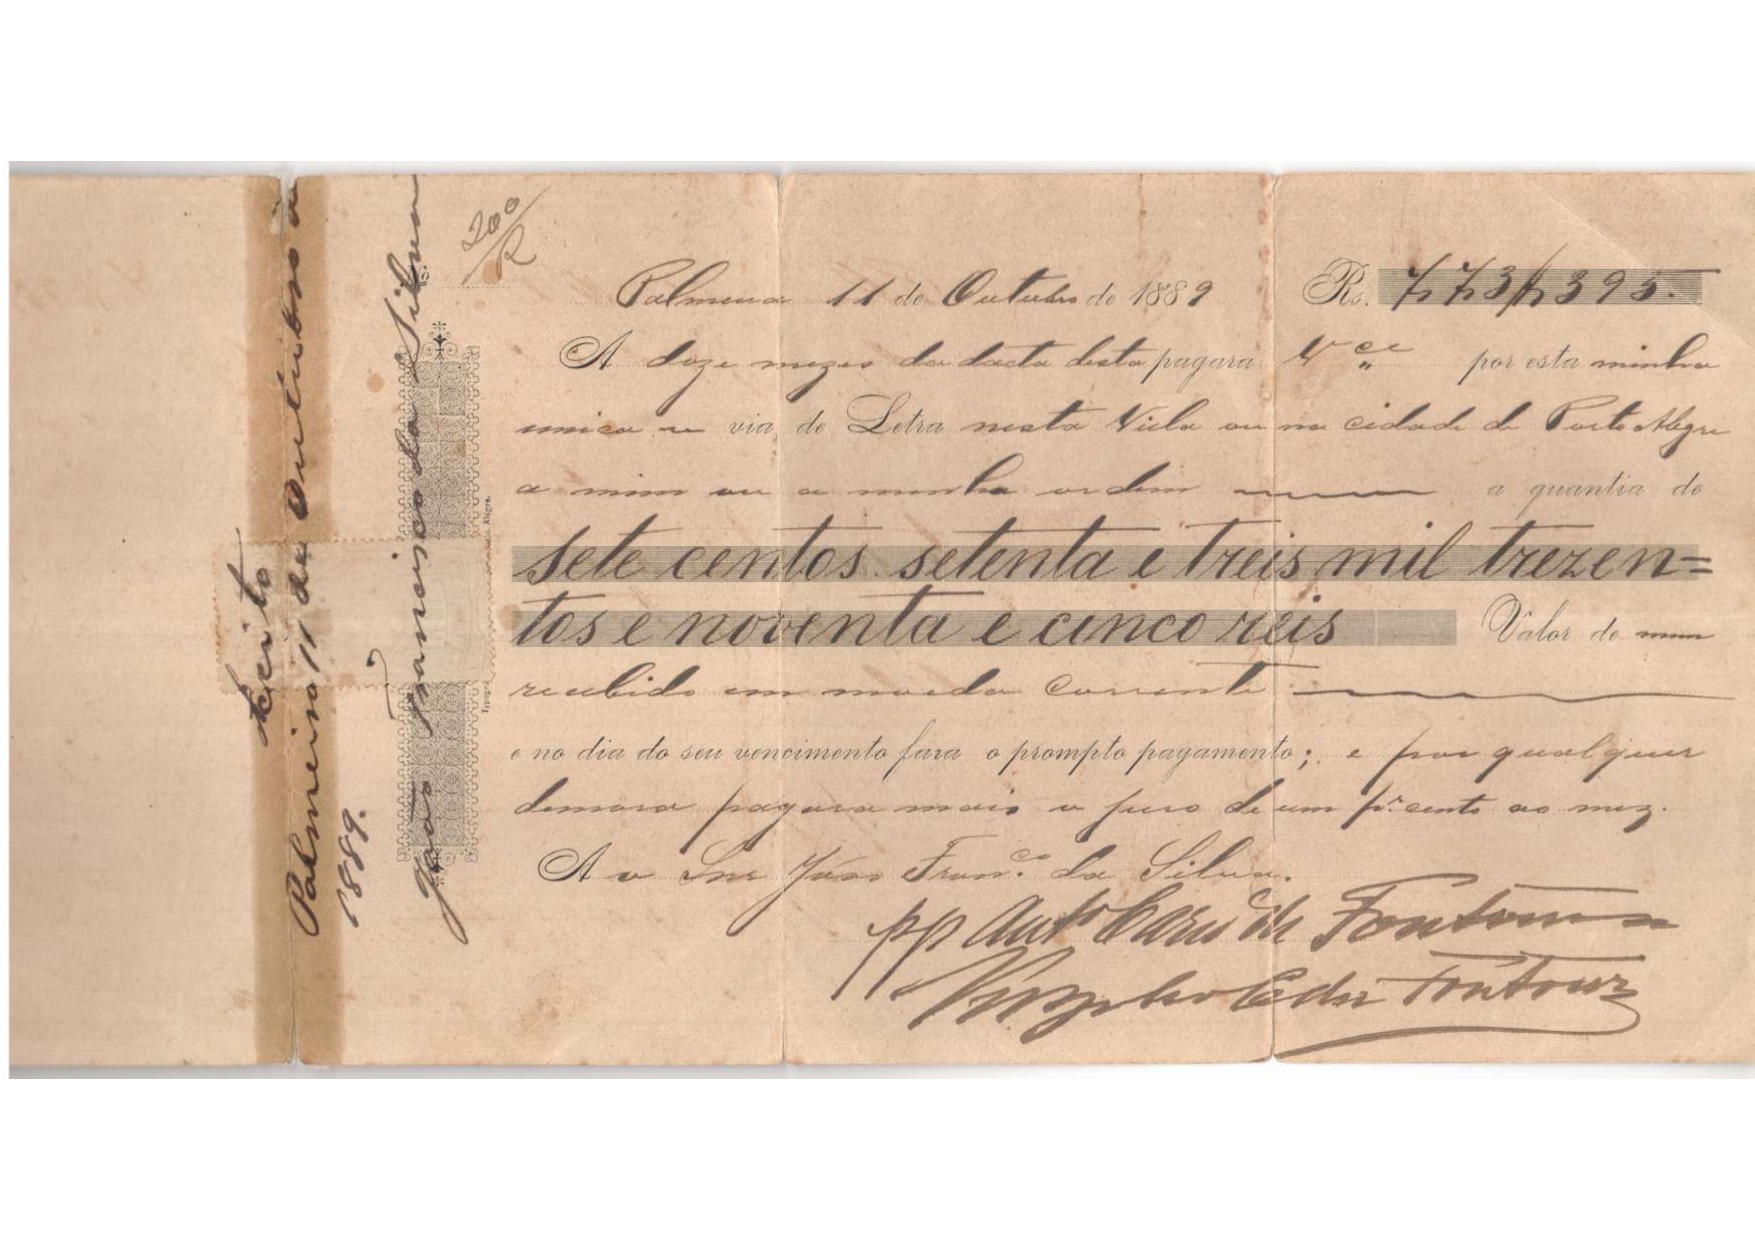 200/R
Palmeira 11 de Outubro de 1889 Rs. 773$395.
A doze mezes da dacta desta pagará Vce por esta minha
unica via de Letra nesta Villa ou na cidade de Porto Alegre
a mim ou a minha ordem a quantia de
sete centos setenta e treis mil trezen=
tos e noventa e cinco réis Valor de mim
recebido em moeda corrente
e no dia do seu vencimento fará o prompto pagamento; e por qualquer
demora pagará mais o juro de um pr cento ao mez.
A o Snr João Franco. da Silva.
pp Anto de Fontoura
Fontoura
Aceito
Palmeira 11 de Outubro d
1889.
João Francisco da Silva